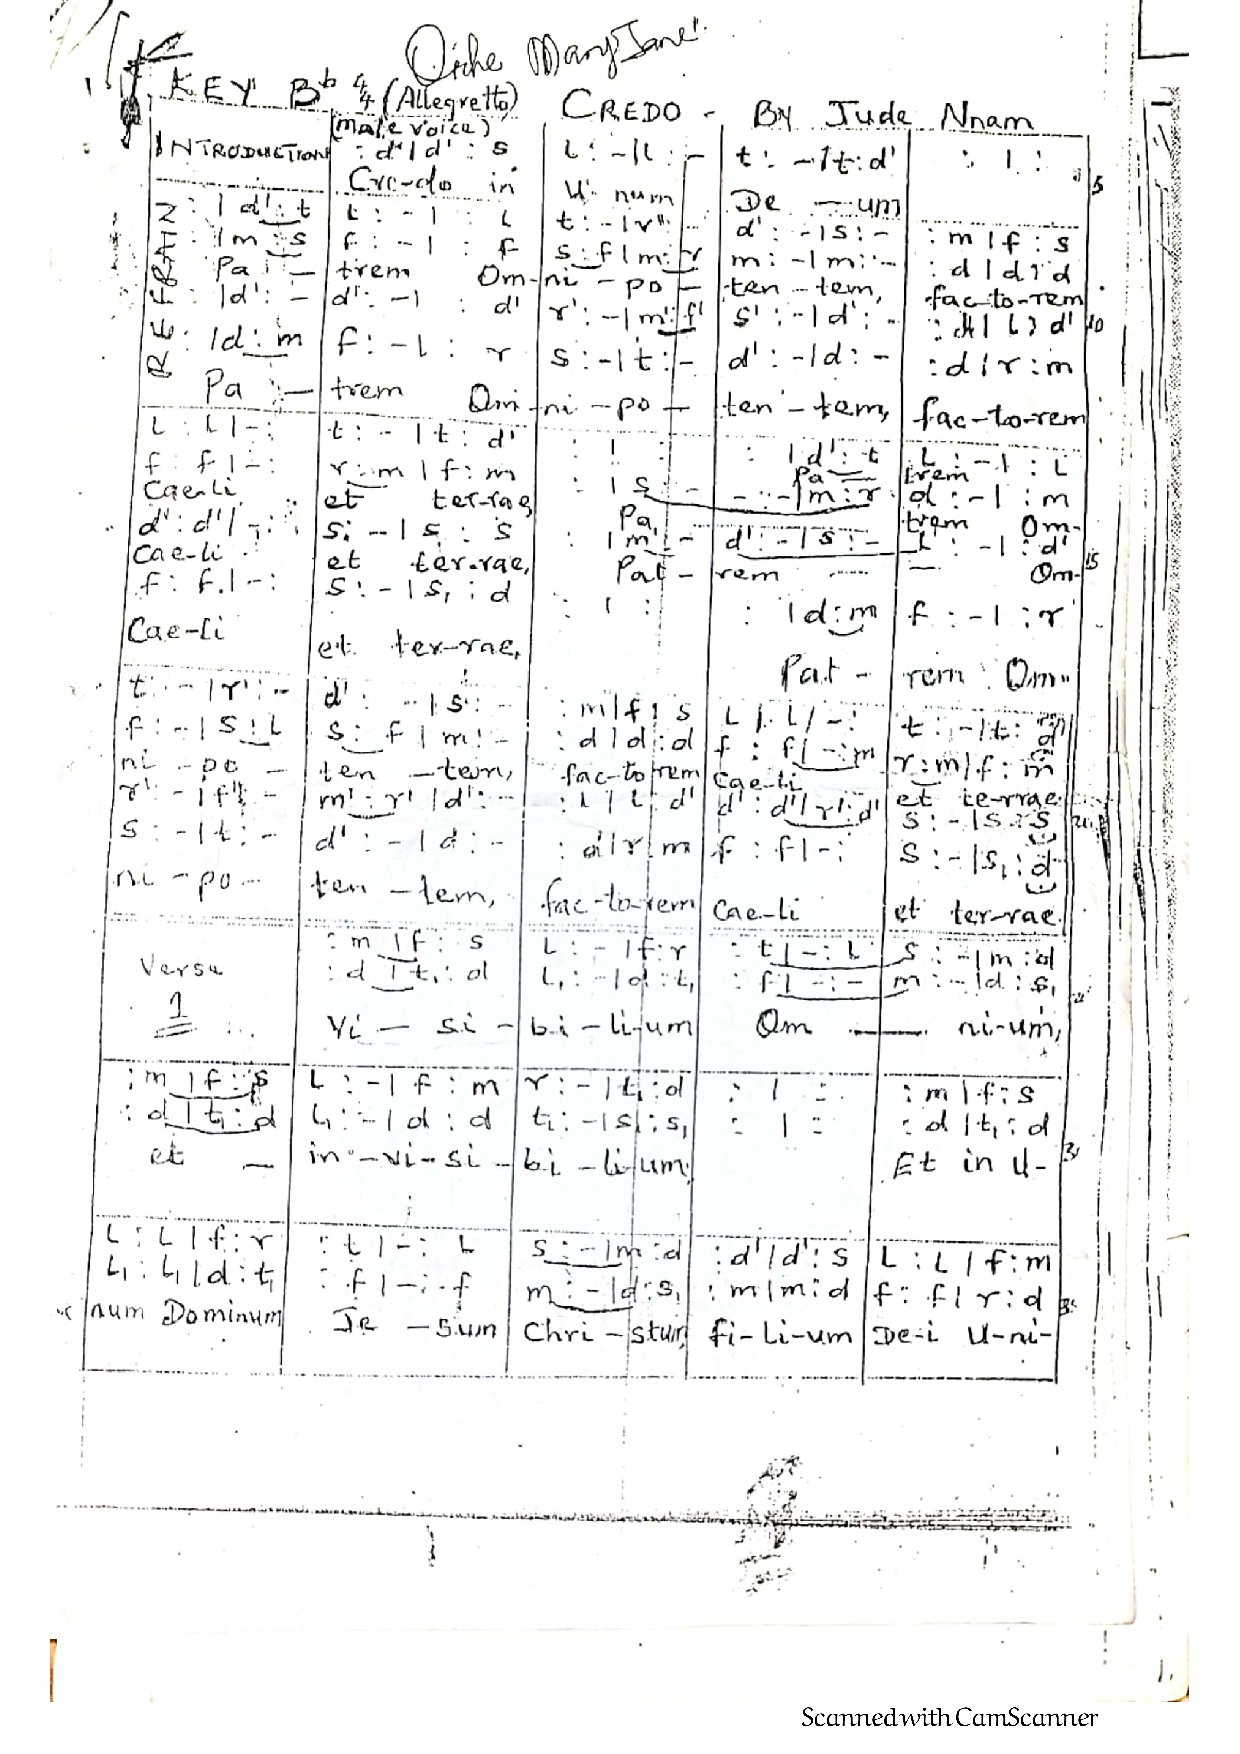 Oiche Mary Jane
KEY Bb 4/4 (Allegretto) CREDO - By Jude Nnam
(male voice)
INTRODUCTION : d' | d' : s L : - | L : - t : - | t : d' : | :
Cre-do in U- num De - um 5
REFRAIN
: | d' : t t : - | : L t : - | r' : - d' : - | s : - : m | f : s
: | m : s f : - | : f s : f | m : r m : - | m : - : d | d : d
Pa - trem Om-ni - po - ten - tem, fac-to-rem
: | d' : - d' : - | : d' r' : - | m' : f' s' : - | d' : - L : d' 10
: | d : m f : - | : r s : - | t : - d' : - | d : - : d | r : m
Pa - trem Om-ni - po - ten - tem, fac-to-rem
L : L | - : t : - | t : d' : | : : | d' : t L : - | : L
Pa - trem
f : f | - : r : m | f : m : | s : - - : - | m : r d : - | : m
Cae-li et ter-rae, Pa, trem Om-
d' : d' | - : s : - | s : s : | m' : - d' : - | s : - L : - | : d' 15
Cae-li et ter-rae, Pat - rem - Om-
f : f | - : s : - | s, : d : | : : | d : m f : - | : r
Cae-li et ter-rae, Pat - rem Om-
t : - | r' : - d' : - | s : - : m | f : s L : L | - : t : - | t : d'
f : - | s : L s : f | m : - : d | d : d f : f | - : m r : m | f : m
ni - po - ten - tem, fac-to rem Cae-li et te-rrae
r' : - | f' : - m' : r' | d' : - : L | L : d' d' : d' | r' : d' s : - | s : s 20
s : - | t : - d' : - | d : - : d | r : m f : f | - : s : - | s, : d
ni - po - ten - tem, fac-to-rem Cae-li et ter-rae.
Verse : m | f : s L : - | f : r : t | - : L s : - | m : d
1 : d | t, : d L, : - | d : t, : f | - : - m : - | d : s,
Vi - si - bi - li-um Om - ni-um,
: m | f : s L : - | f : m r : - | t, : d : | : : m | f : s
: d | t, : d L, : - | d : d t, : - | s, : s, : | : : d | t, : d
et - in - vi - si - bi - li-um, Et in U-
L : L | f : r : t | - : L s : - | m : d : d' | d' : s L : L | f : m
L, : L, | d : t, : f | - : f m : - | d : s, : m | m : d f : f | r : d
num Dominum Je - sum Chri - stum, fi-li-um De-i U-ni-
Scanned with CamScanner